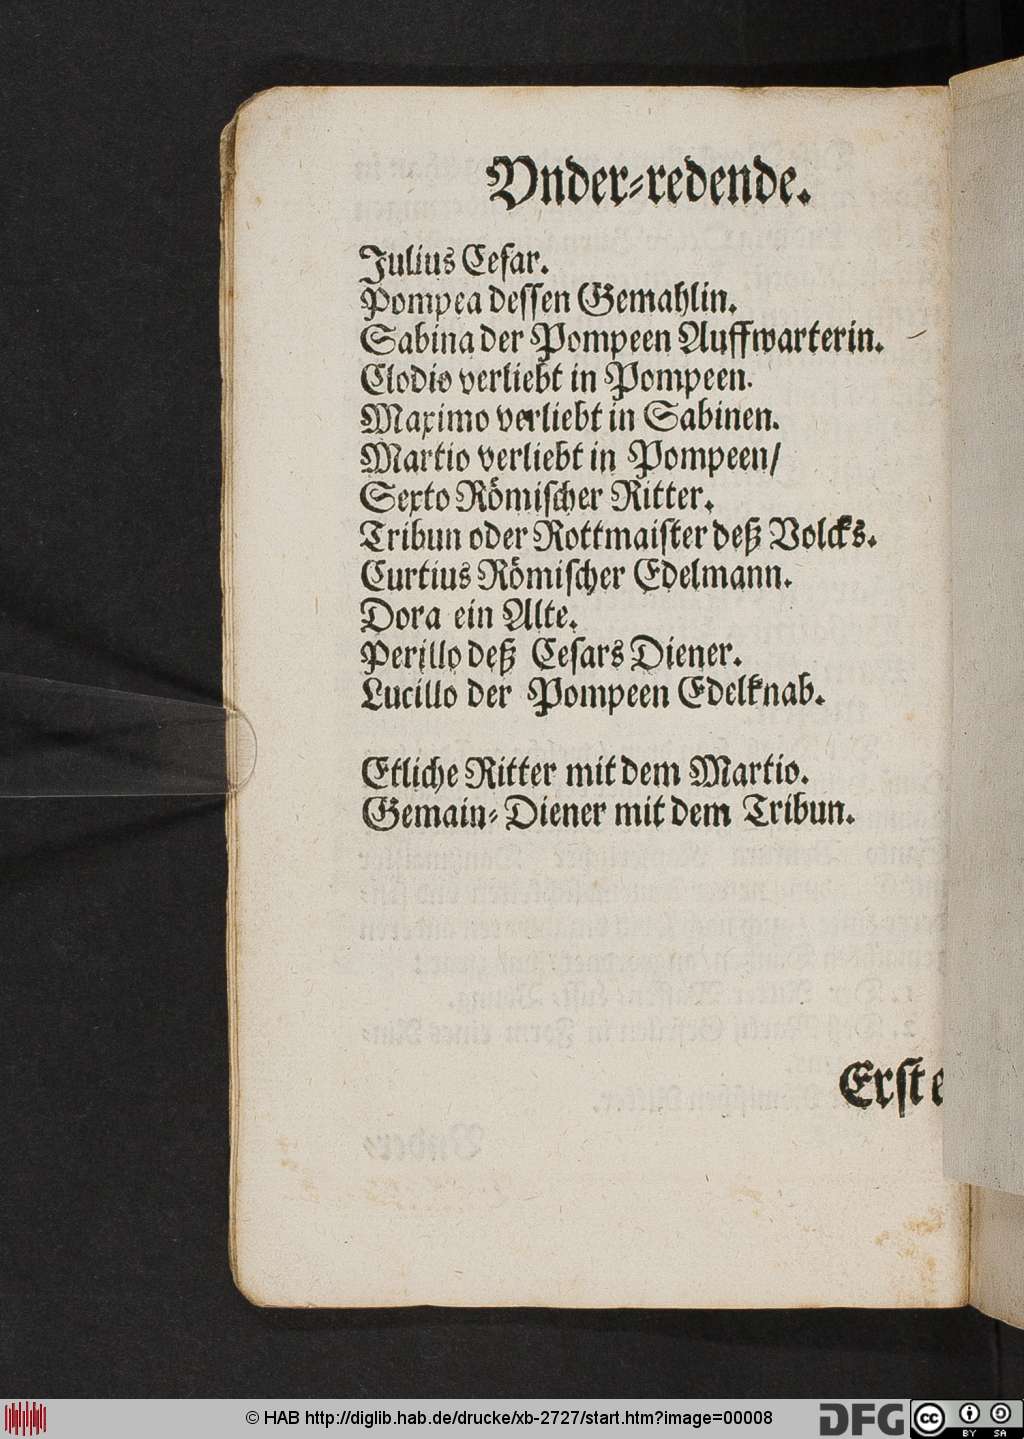 Vnder-redende.
Julius Cesar.
Pompea dessen Gemahlin.
Sabina der Pompeen Auffwarterin.
Clodio verliebt in Pompeen.
Maximo verliebt in Sabinen.
Martio verliebt in Pompeen/
Sexto Römischer Ritter.
Tribun oder Rottmaister deß Volcks.
Curtius Römischer Edelmann.
Dora ein Alte.
Perillo deß Cesars Diener.
Lucillo der Pompeen Edelknab.
Etliche Ritter mit dem Martio.
Gemain-Diener mit dem Tribun.
Erste
© HAB http://diglib.hab.de/drucke/xb-2727/start.htm?image=00008
DFG
cc BY SA